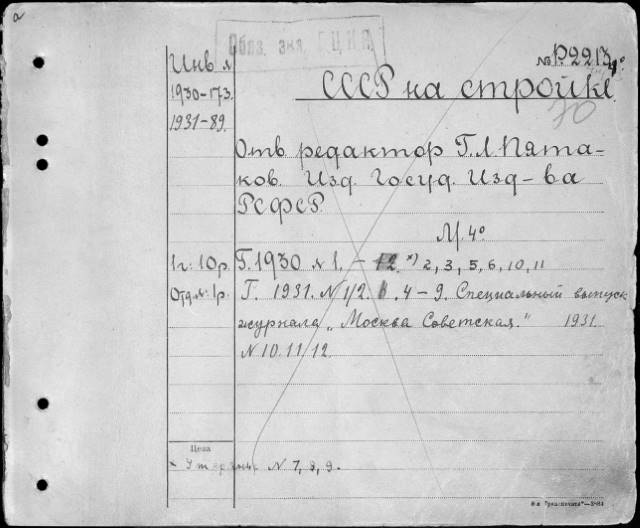 Обяз. экз. Г.Ц.К.П.
№ Р.2213 4°
Инв. №
СССР на стройке
1930-173.
70
1931-89.
Отв. редактор Г.Л. Пята-
ков. Изд. Госуд. Изд-ва
РСФСР.
М. 4°
1 г. 10 р. Г. 1930 № 1. – 12. *) 2, 3, 5, 6, 10, 11
Отд. №: 1 р. Г. 1931. № 1/2. 4-9. Специальный выпуск
журнала „Москва Советская." 1931.
№ 10.11/12.
Цена
№ 7, 8, 9.